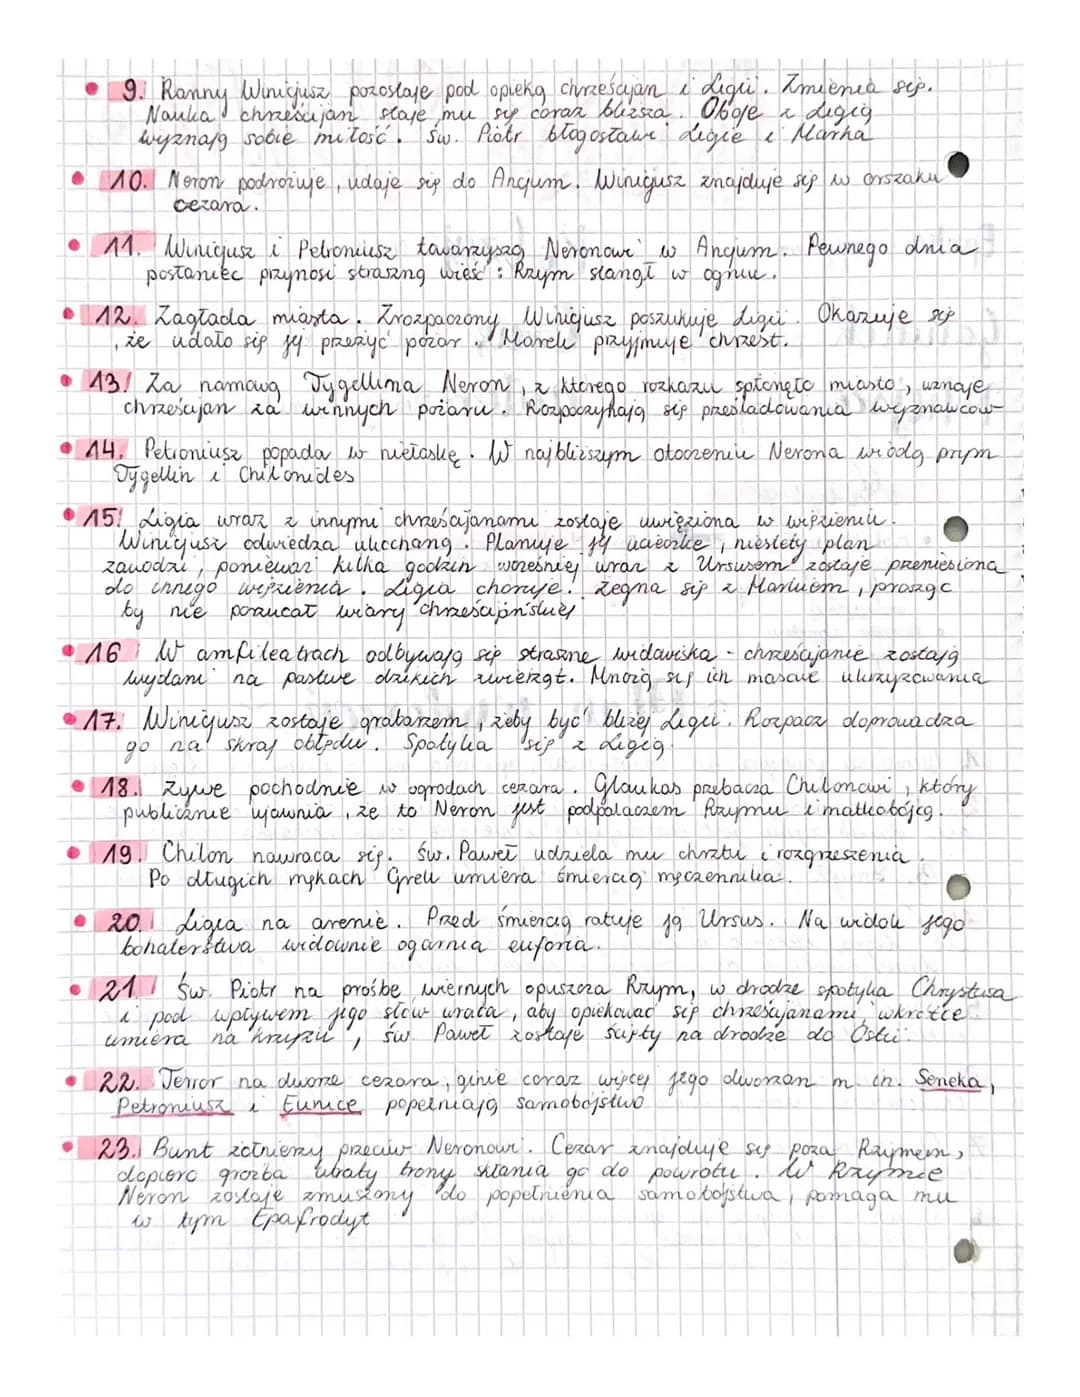 9. Ranny Winicjusz pozostaje pod opieką chrześcijan i Ligii. Zmienia się.
Nauka chrześcijan staje mu się coraz bliższa. Oboje z Ligią
wyznają sobie miłość. św. Piotr błogosławi Ligię i Marka
10. Neron podróżuje, udaje się do Ancjum. Winicjusz znajduje się w orszaku
cezara.
11. Winicjusz i Petroniusz towarzyszą Neronowi w Ancjum. Pewnego dnia
posłaniec przynosi straszną wieść: Rzym stanął w ogniu.
12. Zagłada miasta. Zrozpaczony Winicjusz poszukuje Ligii. Okazuje się
, że udało się jej przeżyć pożar. Marek przyjmuje chrzest.
13. Za namową Tygellina Neron, z którego rozkazu spłonęło miasto, uznaje
chrześcijan za winnych pożaru. Rozpoczynają się prześladowania wyznawców
14. Petroniusz popada w niełaskę. W najbliższym otoczeniu Nerona wiodą prym
Tygellin i Chilonides
15. Ligia wraz z innymi chrześcijanami zostaje uwięziona w więzieniu.
Winicjusz odwiedza ukochaną. Planuje jej ucieczkę, niestety plan
zawodzi, ponieważ kilka godzin wcześniej wraz z Ursusem zostaje przeniesiona
do innego więzienia. Ligia choruje. Żegna się z Markiem, prosząc
by nie porzucał wiary chrześcijańskiej
16 W amfiteatrach odbywają się straszne widowiska - chrześcijanie zostają
wydani na pastwę dzikich zwierząt. Mnożą się ich masowe ukrzyżowania
17. Winicjusz zostaje grabarzem, żeby być bliżej Ligii. Rozpacz doprowadza
go na skraj obłędu. Spotyka się z Ligią.
18. Żywe pochodnie w ogrodach cezara. Glaukos przebacza Chilonowi, który
publicznie ujawnia, że to Neron jest podpalaczem Rzymu i matkobójcą.
19. Chilon nawraca się. św. Paweł udziela mu chrztu i rozgrzeszenia.
Po długich mękach Grek umiera śmiercią męczennika.
20. Ligia na arenie. Przed śmiercią ratuje ją Ursus. Na widok jego
bohaterstwa widownię ogarnia euforia.
21. Św. Piotr na prośbę wiernych opuszcza Rzym, w drodze spotyka Chrystusa
i pod wpływem jego słów wraca, aby opiekować się chrześcijanami, wkrótce
umiera na krzyżu, św. Paweł zostaje ścięty na drodze do Ostii.
22. Terror na dworze cezara, ginie coraz więcej jego dworzan m. in. Seneka,
Petroniusz i Eunice popełniają samobójstwo
23. Bunt żołnierzy przeciw Neronowi. Cezar znajduje się poza Rzymem,
dopiero groźba utraty trony skłania go do powrotu. W Rzymie
Neron zostaje zmuszony do popełnienia samobójstwa, pomaga mu
w tym Epafrodyt